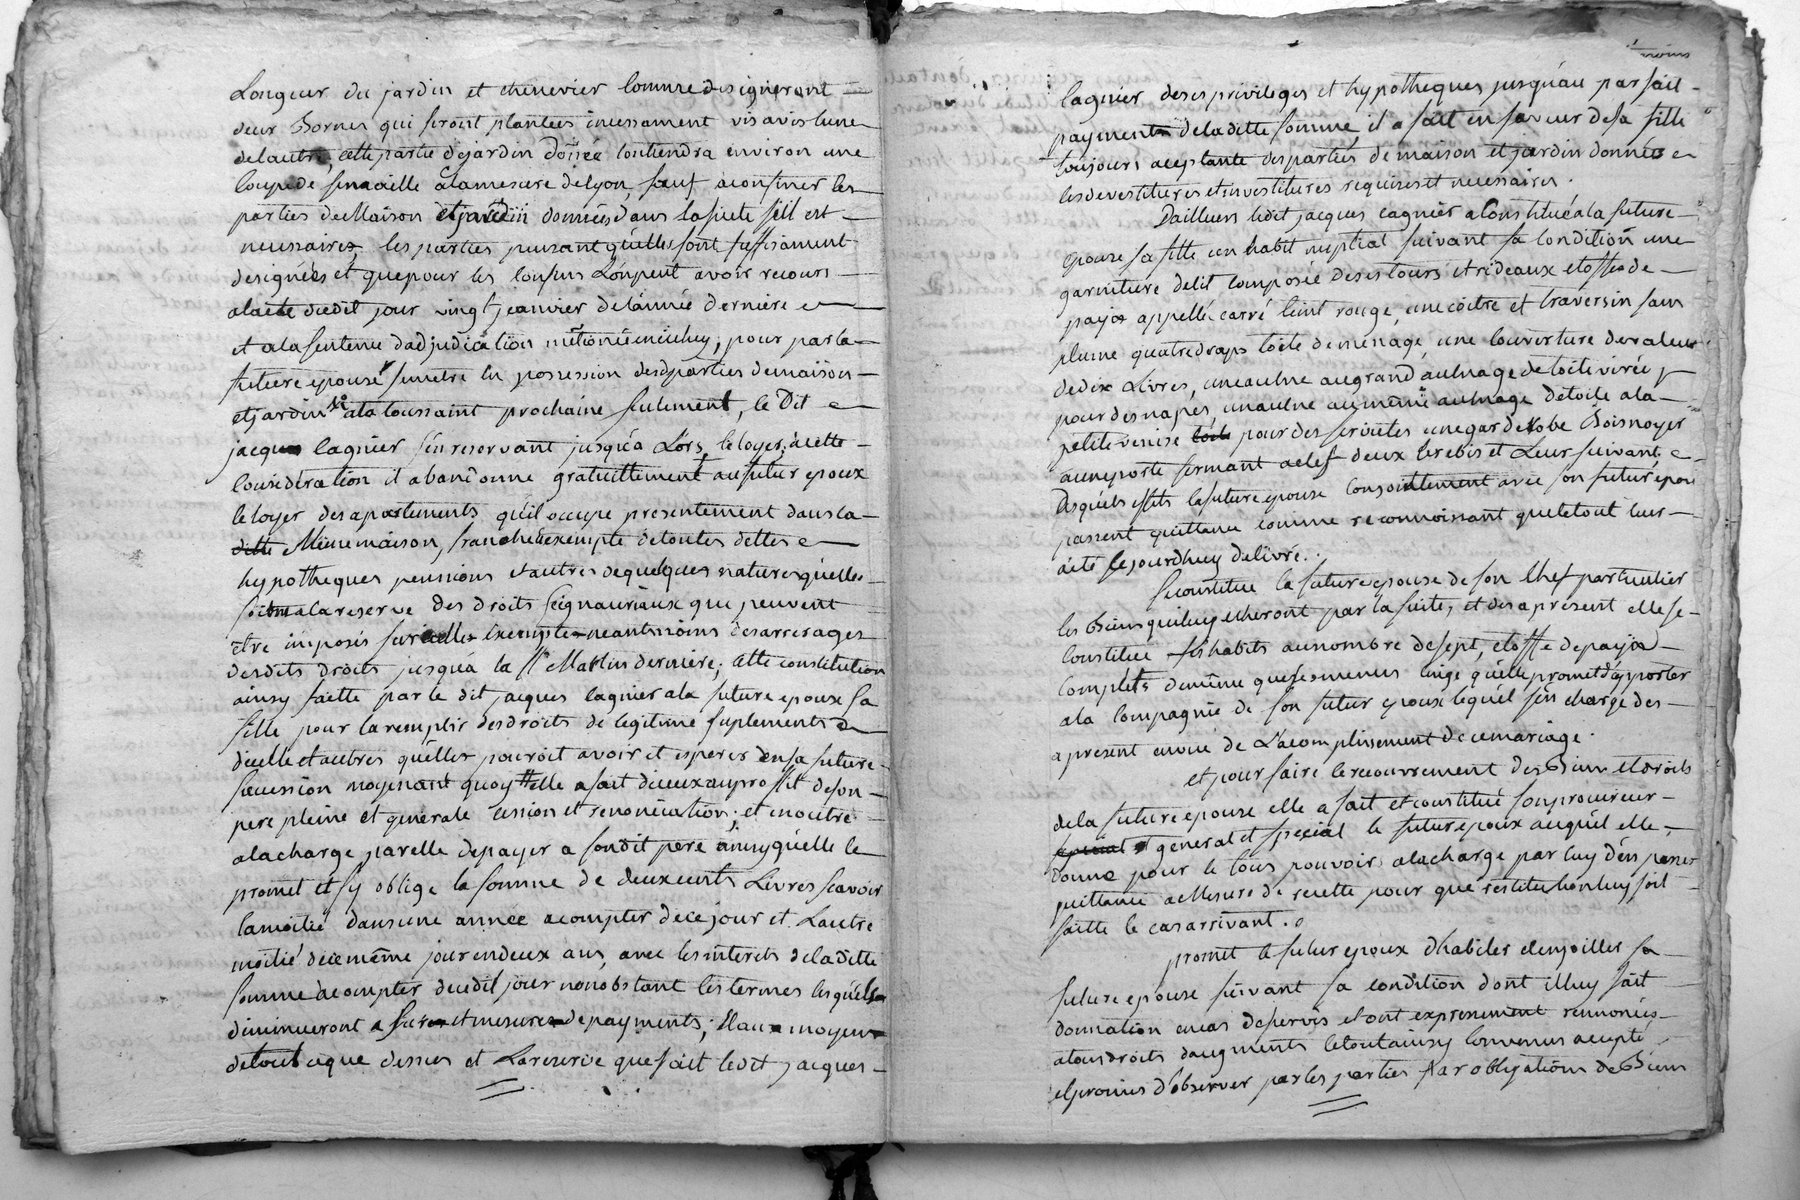 Longeur du jardin et chenevier comme designeront
deux Bornes qui seront plantées incessament vis avis lune
delautre, cette partie dejardin donnée contiendra environ une
coupe de semaille alamesure delyon, sauf aconfiner les
parties de Maison et jardin données dans la suite s'il est
necessaire, les parties pensant quelles sont suffisament
designées et que pour les confins L'on peut avoir recours
alacte dudit jour vingt janvier delannée derniere
et ala sentence dadjudication mentionnée icelluy, pour par la
future epouse se mettre en possession desd parties de maison
et jardin ala toussaint prochaine seulement, le Dit
jacques Cagnier s'en reservant jusqu'a Lors le loyer, a cette
consideration il abandonne gratuittement au futur epoux
le loyer des apartements qu'il occupe presentement dans la
ditte Même maison, franche exempte de toutes dettes
hypotheques pensions et autres de quelques natures qu'elles
soient ala reserve des droits seignauriaux que peuvent
etre imposés sur icelles exemptes neantmoins des arrerages
desdits droits jusqu'a la St Martin derniere; cette constitution
ainsy faitte par le dit jacques Cagnier ala future epoux sa
fille pour la remplir des droits de legitime suplements
dicelle et autres qu'elles pouroit avoir et esperer en sa future
succession moyenant quoy elle a fait dicieux au proffit de son
pere pleine et generale cession et renonciation; et en outre
ala charge par elle de payer a son dit pere ainsy qu'elle le
promet et s'y oblige la somme de deux cents Livres scavoir
la moitié dans une année acompter de ce jour et Lautre
moitié de ce même jour en deux ans, avec les interets de la ditte
somme acompter dudit jour nonobstant les termes lesquels
diminueront a fur et mesure de payments; Et au moyen
de tout ce que dessus et La reserve que fait ledit jacques
Cagnier de ses privileges et hypotheques jusqu'au parfait
payement de la ditte somme il a fait en faveur de sa fille
toujours aceptante des parties de maison et jardin données
les devestitures et investitures requises et necessaires.
Dailleurs ledit jacques Cagnier a Constitué a la future
epouse sa fille un habit nuptial suivant sa condition une
garniture de lit composée de ses tours et rideaux etoffe de
pays appellé carré teint rouge, une coitre et traversin sans
plume quatre draps toile de ménage, une couverture de valeur
de dix Livres, une aulne au grand aulnage de toile virée
pour des napes, une aulne au même aulnage de toile a la
petite venise toile pour des serviettes une garderobe Bois noyer
a une porte fermant a clef deux brebis et Leur suivant
desquels effets la future epouse conjointement avec son futur epoux
passent quittance comme reconnoissant que le tout leur
a eté ce jourdhuy delivré.
Se constitue la future epouse de son Chef particulier
les Biens qui luy echeront par la suite, et des a present elle se
Constitue ses habits au nombre de sept, etoffe de pays
complets de même que ses menus linge qu'elle promet d'apporter
ala Compagnie de son futur epoux lequel s'en charge des
a present envüe de L'acomplissement de ce mariage.
et pour faire le recouvrement des Biens et droits
de la future epouse elle a fait et constitué son procureur
special general et special le futur epoux auquel elle
donne pour ce tous pouvoirs ala charge par luy d'en passer
quittance a Mesure de recette pour que restitution luy soit
faitte le cas arrivant.
promet le futur epoux d'habiller et enjoiller sa
future epouse suivant sa condition dont il luy fait
donnation en cas de survis et ont expressement renoncés
atous droits daugments le tout ainsy Convenus acepté
et promis d'observer par les parties par obligations de Biens